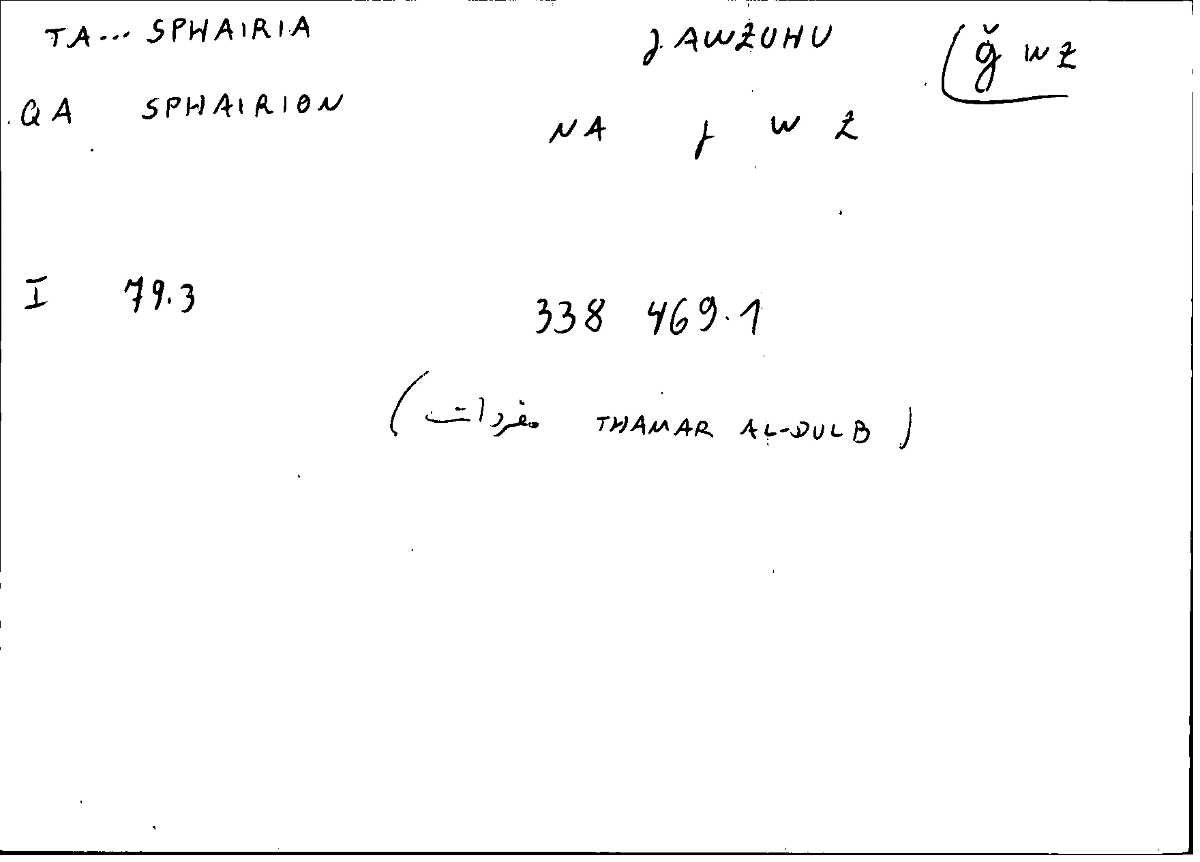 TA... SPHAIRIA JAWZUHU (ǧ WZ
QA SPHAIRION NA J W Z
I 79.3 338 469.1
(مفردات THAMAR AL-DULB)